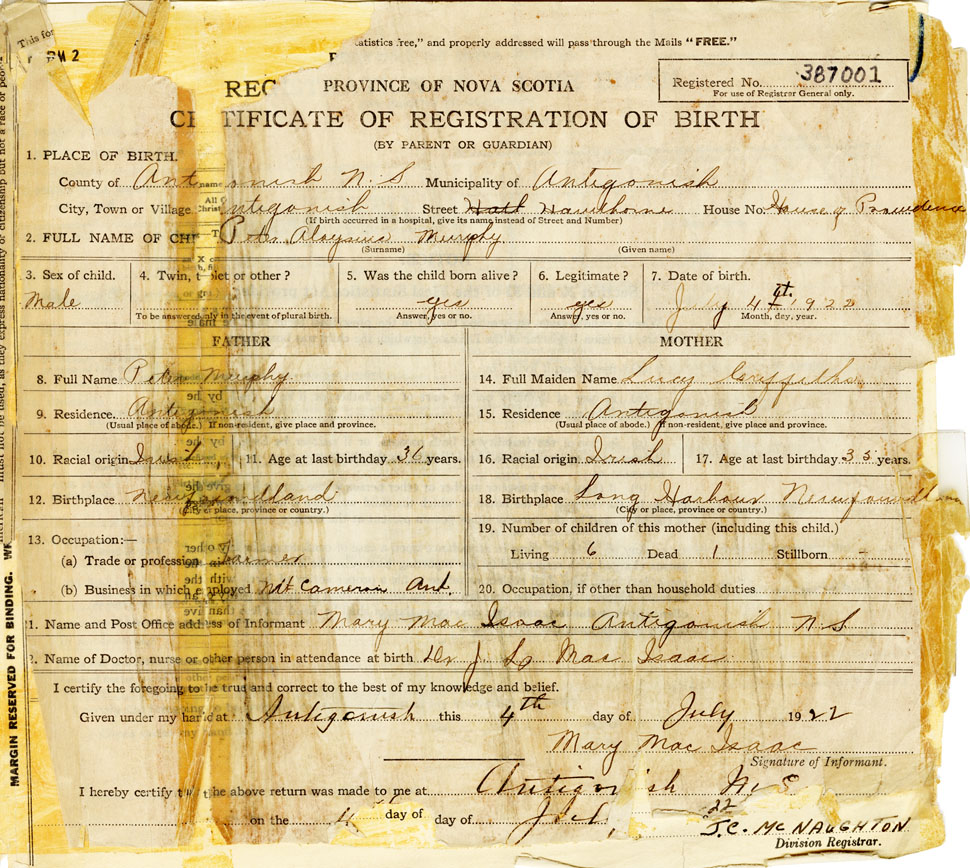 This for
RM 2
statistics free," and properly addressed will pass through the Mails "FREE."
REC PROVINCE OF NOVA SCOTIA
Registered No. 387001
For use of Registrar General only.
CERTIFICATE OF REGISTRATION OF BIRTH
(BY PARENT OR GUARDIAN)
1. PLACE OF BIRTH.
County of Antigonish N.S Municipality of Antigonish
City, Town or Village Antigonish Street Hawthorne House No. House of Providence
(If birth occurred in a hospital, give its name instead of Street and Number)
2. FULL NAME OF CH Peter Aloysius Murphy
(Surname) (Given name)
3. Sex of child. 4. Twin, t let or other? 5. Was the child born alive? 6. Legitimate? 7. Date of birth.
Male yes yes July 4th 1922
To be answered only in the event of plural birth. Answer, yes or no. Answer, yes or no. Month, day, year.
FATHER MOTHER
8. Full Name Peter Murphy 14. Full Maiden Name Lucy Griffiths
9. Residence. Antigonish 15. Residence Antigonish
(Usual place of abode.) If non-resident, give place and province. (Usual place of abode.) If non-resident, give place and province.
10. Racial origin Irish 11. Age at last birthday 36 years. 16. Racial origin Irish 17. Age at last birthday 35 years.
12. Birthplace Newfoundland 18. Birthplace Long Harbour Newfoundland
(City or place, province or country.) (City or place, province or country.)
19. Number of children of this mother (including this child.)
13. Occupation:—
(a) Trade or profession Farmer Living 6 Dead 1 Stillborn -
(b) Business in which employed Mt Cameron Ant. 20. Occupation, if other than household duties
1. Name and Post Office address of Informant Mary Mac Isaac Antigonish N.S
2. Name of Doctor, nurse or other person in attendance at birth Dr J. Mac Isaac
I certify the foregoing to be true and correct to the best of my knowledge and belief.
Given under my hand at Antigonish this 4th day of July 1922
Mary Mac Isaac
Signature of Informant.
I hereby certify the above return was made to me at Antigonish N.S
on the 4 day of day of Jul, 22
J.C. McNAUGHTON
Division Registrar.
MARGIN RESERVED FOR BINDING.